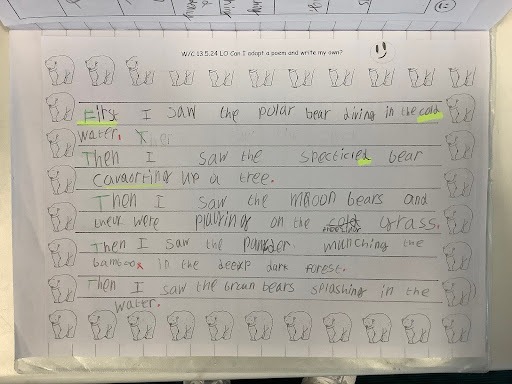 W/C 13.5.24 LO Can I adapt a poem and write my own?
First I saw the polar bear diving in the cold
water.
Then I saw the specticled bear
up a tree.
Then I saw the moon bears and
were playing on the grass.
Then I saw the munching the
bamboo in the deep dark forest.
Then I saw the broun bears splashing in the
water.